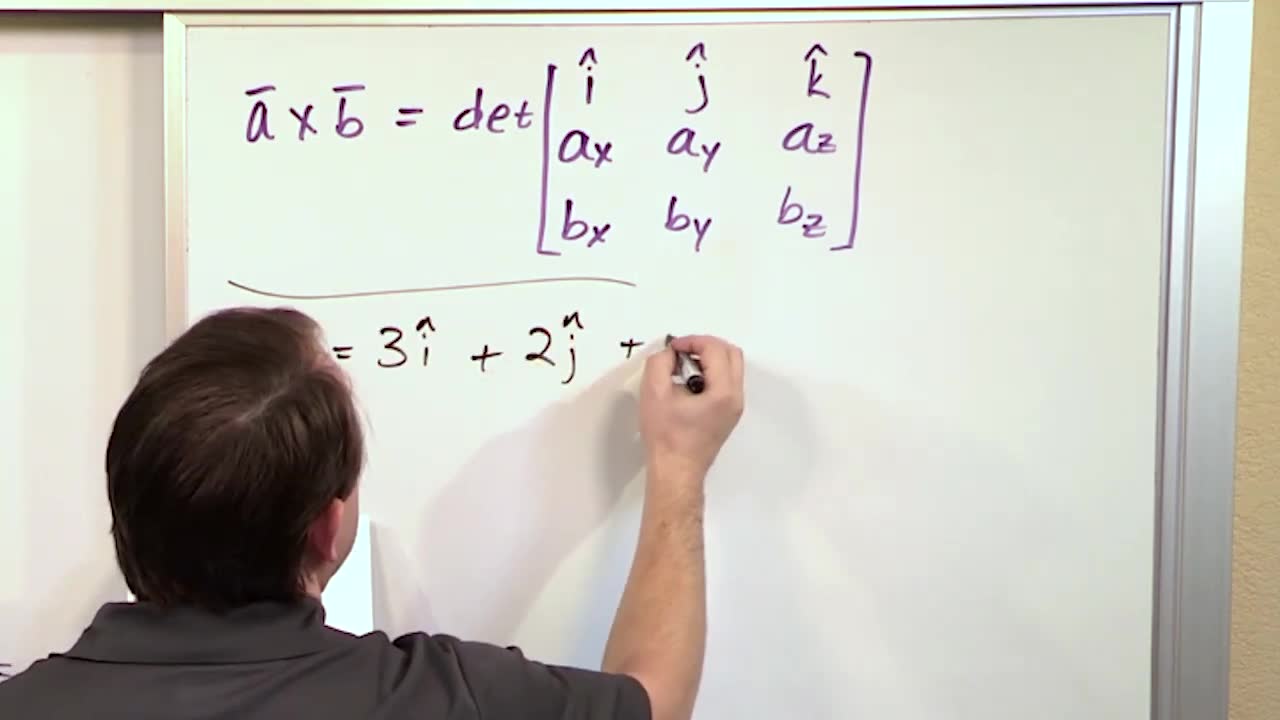 a̅ x b̅ = det [ î ĵ k̂
ax ay az
bx by bz ]
= 3î + 2ĵ +